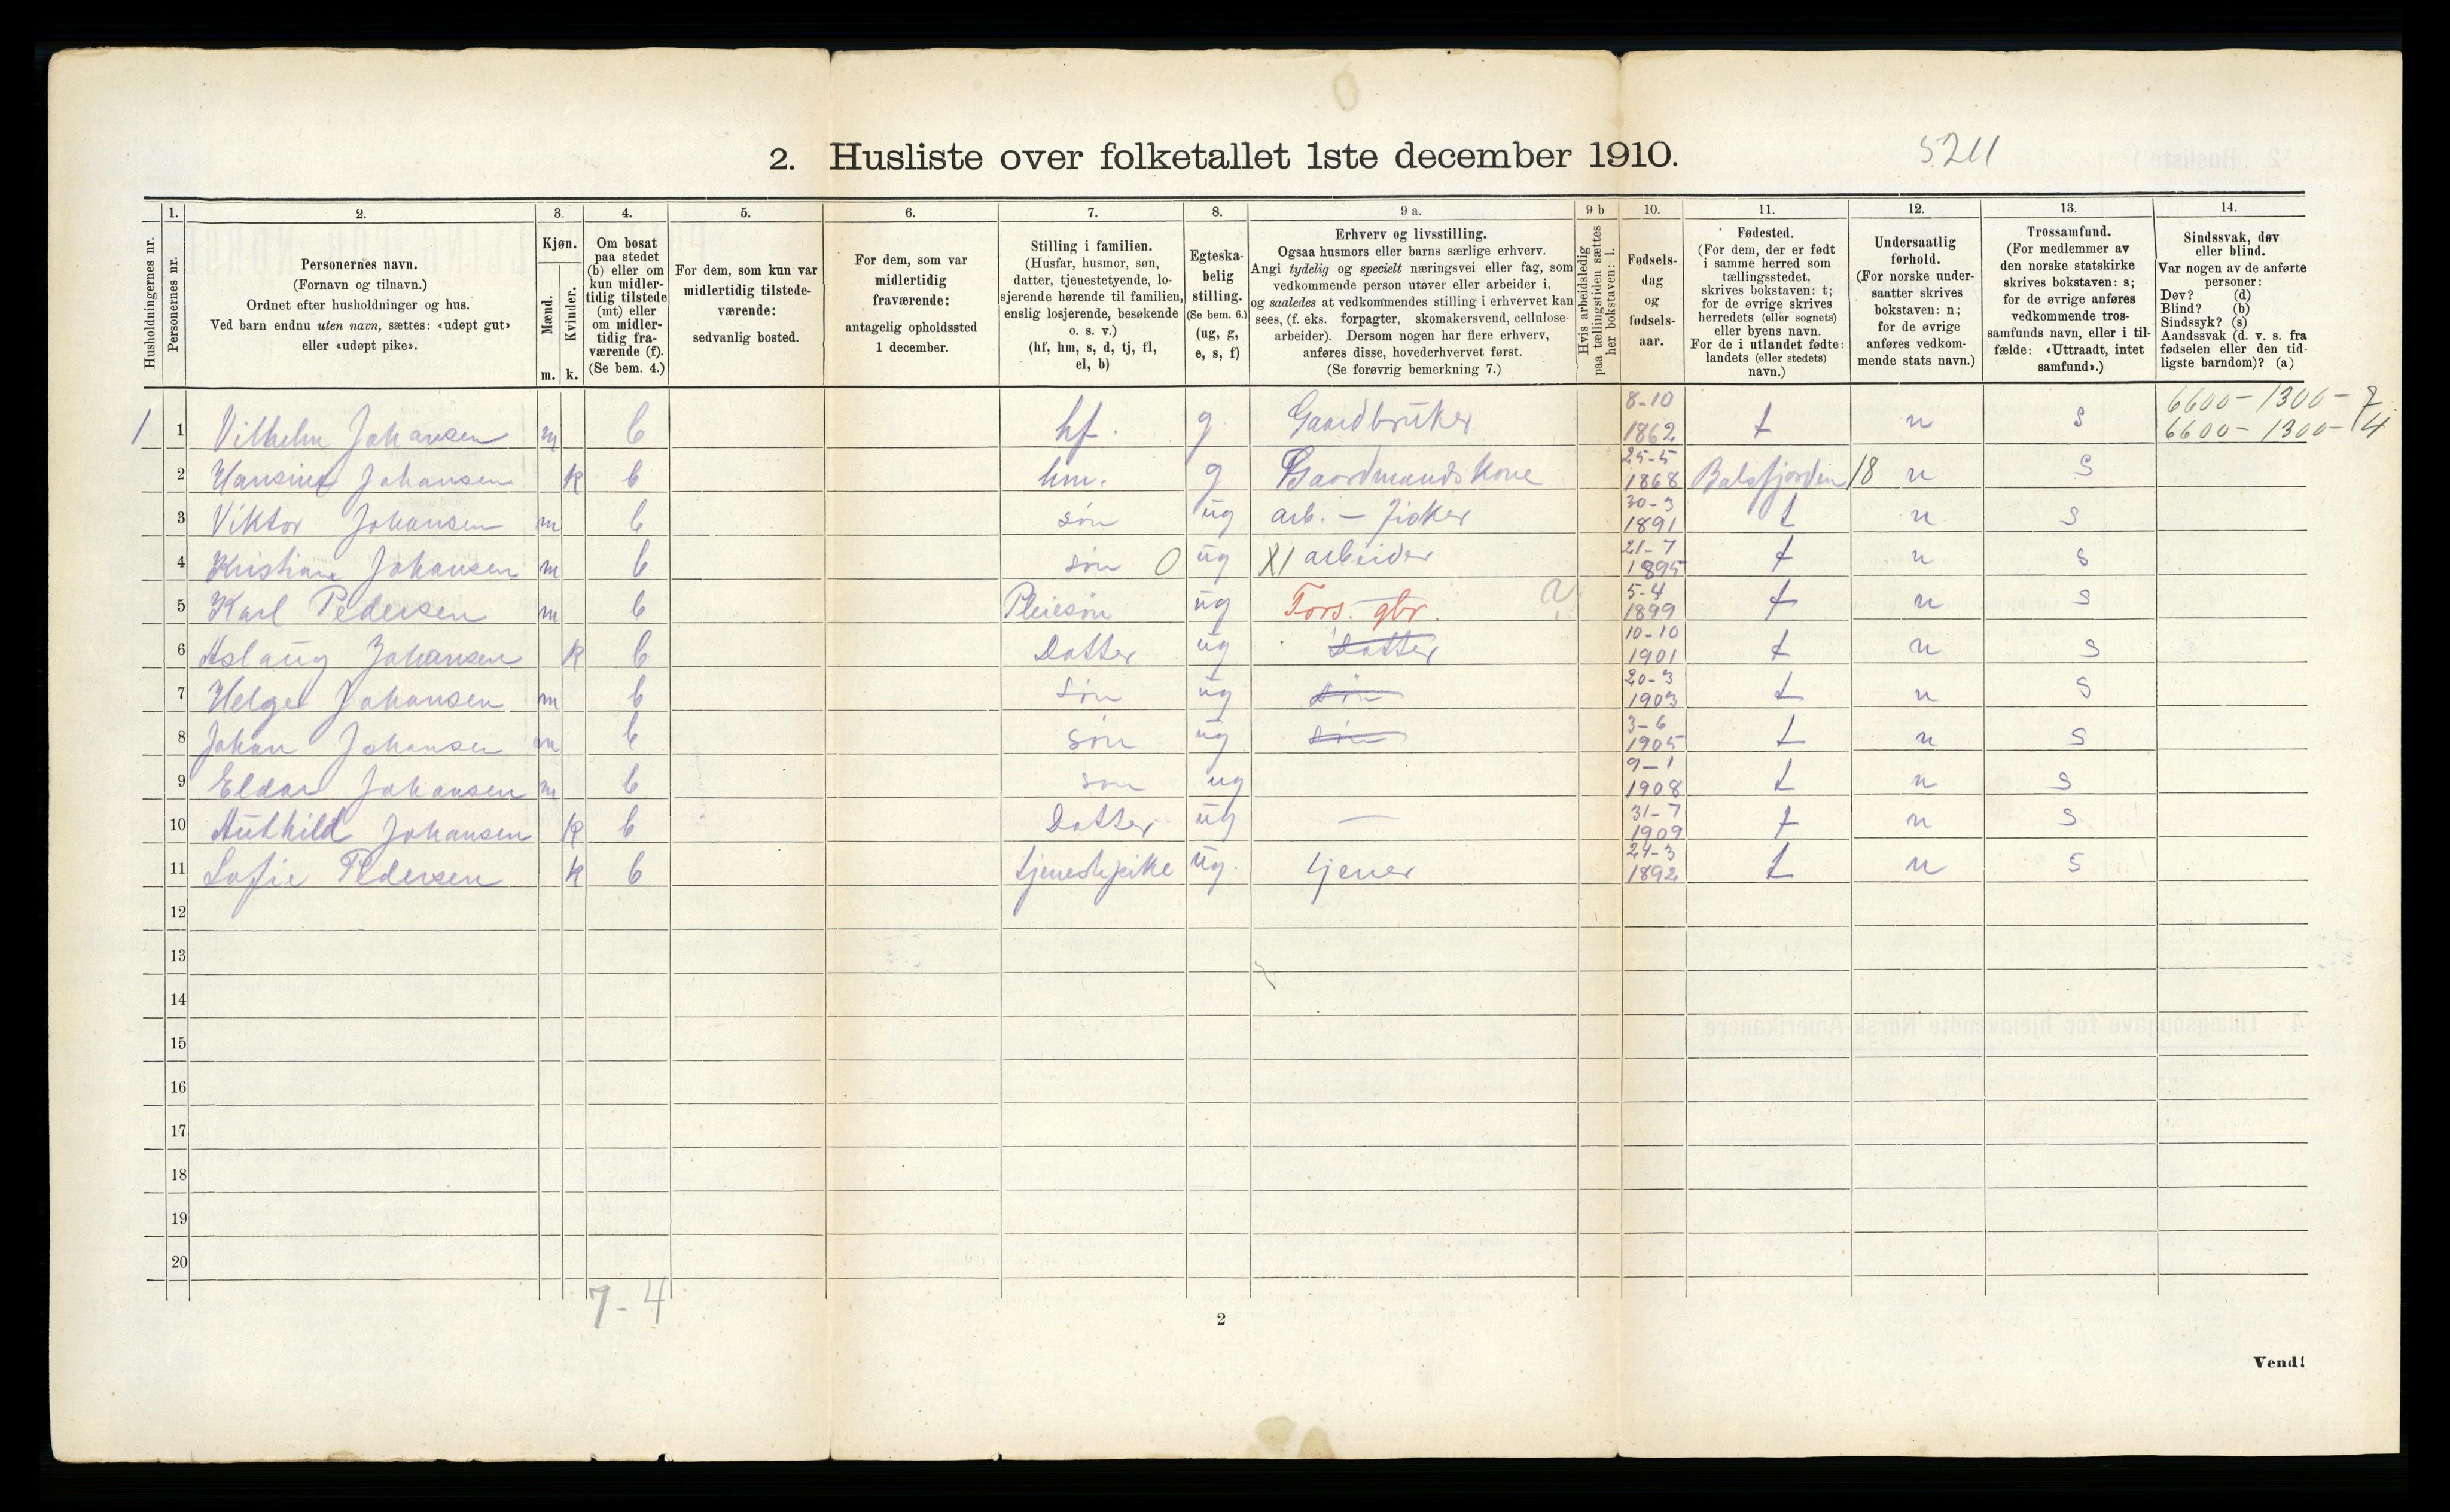 2. Husliste over folketallet 1ste december 1910.
5211
Husholdningernes nr.
1.
Personernes nr.
2.
Personernes navn.
(Fornavn og tilnavn.)
Ordnet efter husholdninger og hus.
Ved barn endnu uten navn, sættes: «udøpt gut»
eller «udøpt pike».
3.
Kjøn.
Mænd.
Kvinder.
m. k.
4.
Om bosat
paa stedet
(b) eller om
kun midler-
tidig tilstede
(mt) eller
om midler-
tidig fra-
værende (f).
(Se bem. 4.)
5.
For dem, som kun var
midlertidig tilstede-
værende:
sedvanlig bosted.
6.
For dem, som var
midlertidig
fraværende:
antagelig opholdssted
1 december.
7.
Stilling i familien.
(Husfar, husmor, søn,
datter, tjenestetyende, lo-
sjerende hørende til familien,
enslig losjerende, besøkende
o. s. v.)
(hf, hm, s, d, tj, fl,
el, b)
8.
Egteska-
belig
stilling.
(Se bem. 6.)
(ug, g,
e, s, f)
9 a.
Erhverv og livsstilling.
Ogsaa husmors eller barns særlige erhverv.
Angi tydelig og specielt næringsvei eller fag, som
vedkommende person utøver eller arbeider i,
og saaledes at vedkommendes stilling i erhvervet kan
sees, (f. eks. forpagter, skomakersvend, cellulose-
arbeider). Dersom nogen har flere erhverv,
anføres disse, hovederhvervet først.
(Se forøvrig bemerkning 7.)
9 b
Hvis arbeidsledig
paa tællingstiden sættes
her bokstaven: l.
10.
Fødsels-
dag
og
fødsels-
aar.
11.
Fødested.
(For dem, der er født
i samme herred som
tællingsstedet,
skrives bokstaven: t;
for de øvrige skrives
herredets (eller sognets)
eller byens navn.
For de i utlandet fødte:
landets (eller stedets)
navn.)
12.
Undersaatlig
forhold.
(For norske under-
saatter skrives
bokstaven: n;
for de øvrige
anføres vedkom-
mende stats navn.)
13.
Trossamfund.
(For medlemmer av
den norske statskirke
skrives bokstaven: s;
for de øvrige anføres
vedkommende tros-
samfunds navn, eller i til-
fælde: «Uttraadt, intet
samfund».)
14.
Sindssvak, døv
eller blind.
Var nogen av de anførte
personer:
Døv? (d)
Blind? (b)
Sindssyk? (s)
Aandssvak (d. v. s. fra
fødselen eller den tid-
ligste barndom)? (a)
1 1 Vilhelm Johansen m b hf. g. Gaardbruker 8-10 1862 t n s 6600-1300-7
6600-1300-14
2 Hansine Johansen k b hm. g Gaardmands Kone 25-5 1868 Balsfjorden 18 n s
3 Viktor Johansen m b søn ug arb. - fisker 30-3 1891 t n s
4 Kristian Johansen m b søn 0 ug X1 arbeider 21-7 1895 t n s
5 Karl Pedersen m b Pleiesøn ug Fors. gbr. ? 5-4 1899 t n s
6 Aslaug Johansen k b Datter ug Datter 10-10 1901 t n s
7 Helge Johansen m b søn ug søn 20-3 1903 t n s
8 Johan Johansen m b søn ug søn 3-6 1905 t n s
9 Eldar Johansen m b søn ug 9-1 1908 t n s
10 Authild Johansen k b Datter ug — 31-7 1909 t n s
11 Sofie Pedersen k b tjenestepike ug. tjener 24-3 1892 t n s
12
13
14
15
16
17
18
19
20
7-4
2
Vend!